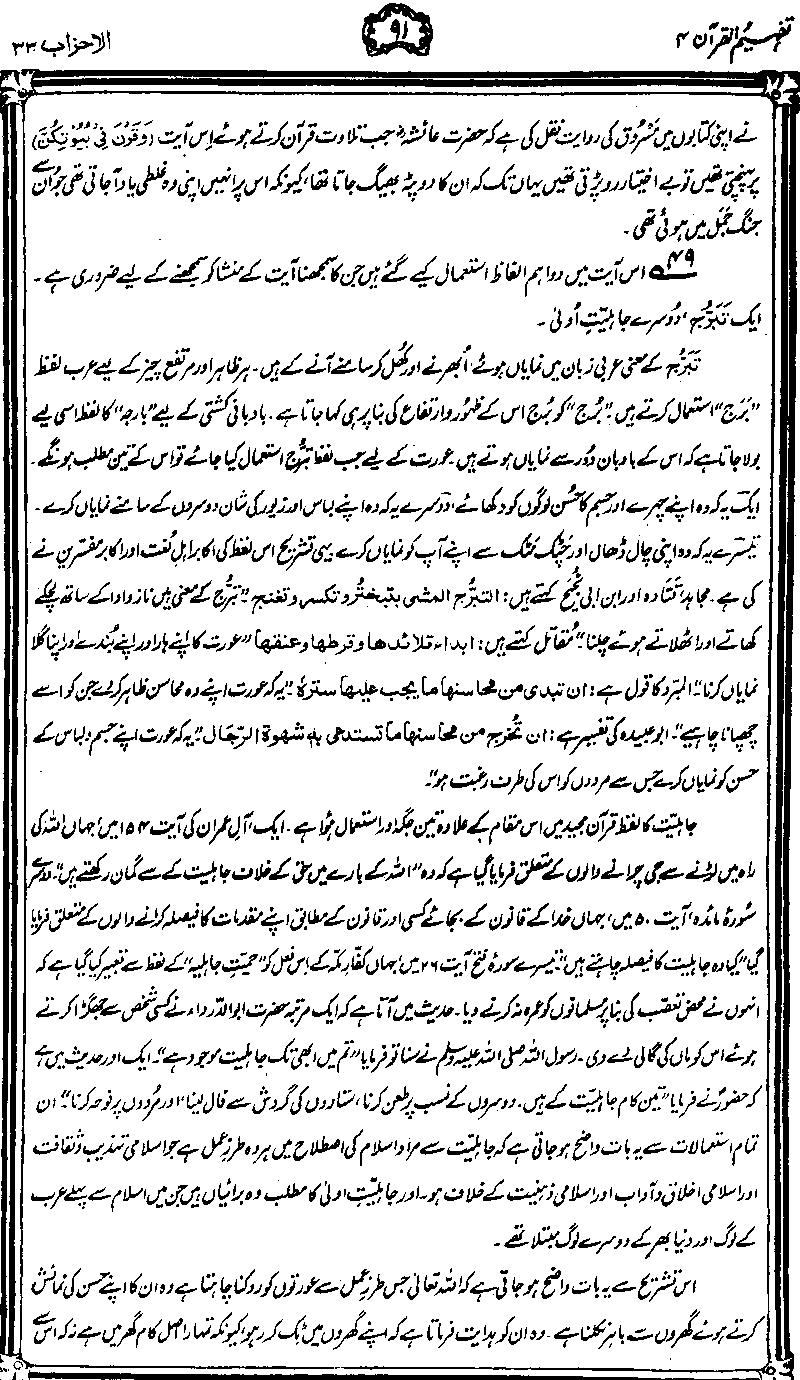 تفہیم القرآن ۴
۹۱
الاحزاب ۳۳
نے اپنی کتابوں میں مَسْرُوق کی روایت نقل کی ہے کہ حضرت عائشہؓ جب تلاوت قرآن کرتے ہوئے اِس آیت (وَقَرْنَ فِیْ بُیُوْتِکُنَّ)
پر پہنچتی تھیں تو بے اختیار رو پڑتی تھیں یہاں تک کہ ان کا دوپٹہ بھیگ جاتا تھا، کیونکہ اس پر انہیں اپنی وہ غلطی یاد آجاتی تھی جو اُن سے
جنگِ جَمَل میں ہوئی تھی۔
۴۹؎ اس آیت میں دو اہم الفاظ استعمال کیے گئے ہیں جن کا سمجھنا آیت کے منشا کو سمجھنے کے لیے ضروری ہے۔
ایک تَبَرُّج، دُوسرے جاہلیّتِ اُولیٰ۔
تَبَرُّج کے معنی عربی زبان میں نمایاں ہونے، اُبھرنے اور کھُل کر سامنے آنے کے ہیں۔ ہر ظاہر اور مرتفع چیز کے لیے عرب لفظ
”بَرَج“ استعمال کرتے ہیں۔ ”بُرج“ کو بُرج اس کے ظہُور و ارتفاع کی بنا پر ہی کہا جاتا ہے۔ بادبانی کشتی کے لیے ”بارجہ“ کا لفظ اسی لیے
بولا جاتا ہے کہ اس کے بادبان دُور سے نمایاں ہوتے ہیں۔ عورت کے لیے جب لفظ تبرُّج استعمال کیا جائے تو اس کے تین مطلب ہونگے۔
ایک یہ کہ وہ اپنے چہرے اور جسم کا حُسن لوگوں کو دکھائے، دُوسرے یہ کہ وہ اپنے لباس اور زیور کی شان دوسروں کے سامنے نمایاں کرے۔
تیسرے یہ کہ وہ اپنی چال ڈھال اور چٹک مٹک سے اپنے آپ کو نمایاں کرے۔ یہی تشریح اس لفظ کی اکابر اہلِ لُغت اور اکابر مفسّرین نے
کی ہے۔ مجاہد، قَتَادہ اور ابن ابی نُجَیح کہتے ہیں: التبرّج المشی بتبختر و تکسر و تغنج ”تبرُّج کے معنی ہیں ناز و ادا کے ساتھ لچکے
کھاتے اور اٹھلاتے ہوئے چلنا“۔ مُقاتل کہتے ہیں: ابداء قلائدھا و قرطھا و عنقھا ”عورت کا اپنے ہار اور اپنے بُندے اور اپنا گلا
نمایاں کرنا“۔ المبرّد کا قول ہے: ان تبدی من محاسنھا ما یجب علیھا سترہٗ ”یہ کہ عورت اپنے وہ محاسن ظاہر کردے جن کو اسے
چھپانا چاہیے“۔ ابو عبیدہ کی تفسیر ہے: ان تُخرج من محاسنھا ما تستدعی بہٖ شھوة الرّجال ”یہ کہ عورت اپنے جسم و لباس کے
حسن کو نمایاں کرے جس سے مردوں کو اس کی طرف رغبت ہو“۔
جاہلیّت کا لفظ قرآن مجید میں اس مقام کے علاوہ تین جگہ اور استعمال ہُوا ہے۔ ایک، آلِ عمران کی آیت ۱۵۴ میں، جہاں اللہ کی
راہ میں لڑنے سے جی چرانے والوں کے متعلق فرمایا گیا ہے کہ وہ ”اللہ کے بارے میں حق کے خلاف جاہلیت کے سے گمان رکھتے ہیں“۔ دوسرے
سُورۂ مائدہ، آیت ۵۰ میں، جہاں خدا کے قانون کے بجائے کسی اور قانون کے مطابق اپنے مقدمات کا فیصلہ کرانے والوں کے متعلق فرمایا
گیا ”کیا وہ جاہلیت کا فیصلہ چاہتے ہیں“۔ تیسرے سورۂ فتح، آیت ۲۶ میں، جہاں کفّارِ مکّہ کے اِس فعل کو ”حمیّتِ جاہلیہ“ کے لفظ سے تعبیر کیا گیا ہے کہ
انہوں نے محض تعصّب کی بنا پر مسلمانوں کو عمرہ نہ کرنے دیا۔ حدیث میں آتا ہے کہ ایک مرتبہ حضرت ابوالدّرداء نے کسی شخص سے جھگڑا کرتے
ہوئے اس کو ماں کی گالی دے دی۔ رسول اللہ صلی اللہ علیہ وسلم نے سنا تو فرمایا ”تم میں ابھی تک جاہلیت موجود ہے“۔ ایک اور حدیث میں ہے
کہ حضورؐ نے فرمایا ”تین کام جاہلیّت کے ہیں۔ دوسروں کے نسب پر طعن کرنا، ستاروں کی گردش سے فال لینا، اور مُردوں پر نوحہ کرنا“۔ ان
تمام استعمالات سے یہ بات واضح ہو جاتی ہے کہ جاہلیّت سے مراد اسلام کی اصطلاح میں ہر وہ طرزِ عمل ہے جو اسلامی تہذیب و ثقافت
اور اسلامی اخلاق و آداب اور اسلامی ذہنیت کے خلاف ہو۔ اور جاہلیّتِ اولیٰ کا مطلب وہ برائیاں ہیں جن میں اسلام سے پہلے عرب
کے لوگ اور دنیا بھر کے دوسرے لوگ مبتلا تھے۔
اس تشریح سے یہ بات واضح ہو جاتی ہے کہ اللہ تعالیٰ جس طرزِ عمل سے عورتوں کو روکنا چاہتا ہے وہ ان کا اپنے حسن کی نمائش
کرتے ہوئے گھروں سے باہر نکلنا ہے۔ وہ ان کو ہدایت فرماتا ہے کہ اپنے گھروں میں ٹِک کر رہو، کیونکہ تمہارا اصل کام گھر میں ہے نہ کہ اس سے